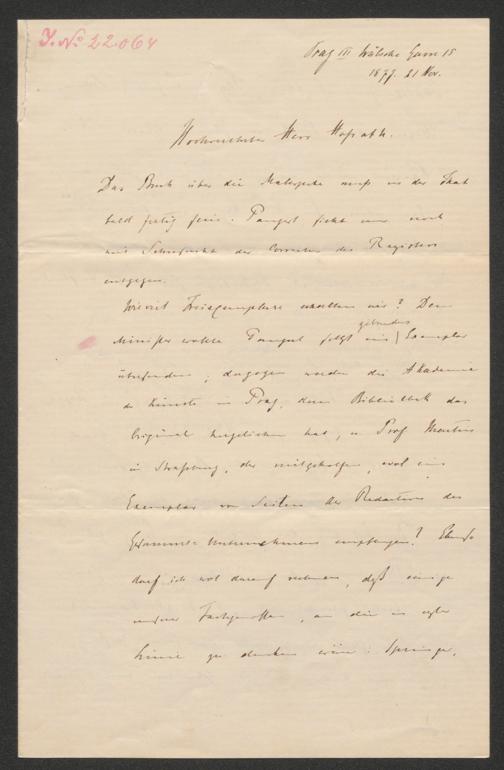 J. No 22.064
Prag III Wälsche Gasse 15
1877. 21 Nov.
Hochverehrter Herr Hofrath.
Das Buch über die Malerzeche muß in der That
bald fertig sein. Pangerl sieht nur noch
mit Sehnsucht der Correctur des Registers
entgegen.
Wieviel Freiexemplare erhalten wir? Dem
Minister wollte Pangerl selbst ein gebundenes Exemplar
übersenden; dagegen werden die Akademie
der Künste in Prag, deren Bibliothek das
Original hergeliehen hat, u. Prof Martin
in Straßburg, der mitgeholfen, wol ein
Exemplar von Seiten der Redaction des
Gesammt-Unternehmens empfangen? Ebenso
darf ich wol darauf rechnen, daß einige
meiner Fachgenossen, an die in erster
Linie zu denken wäre: Springer,